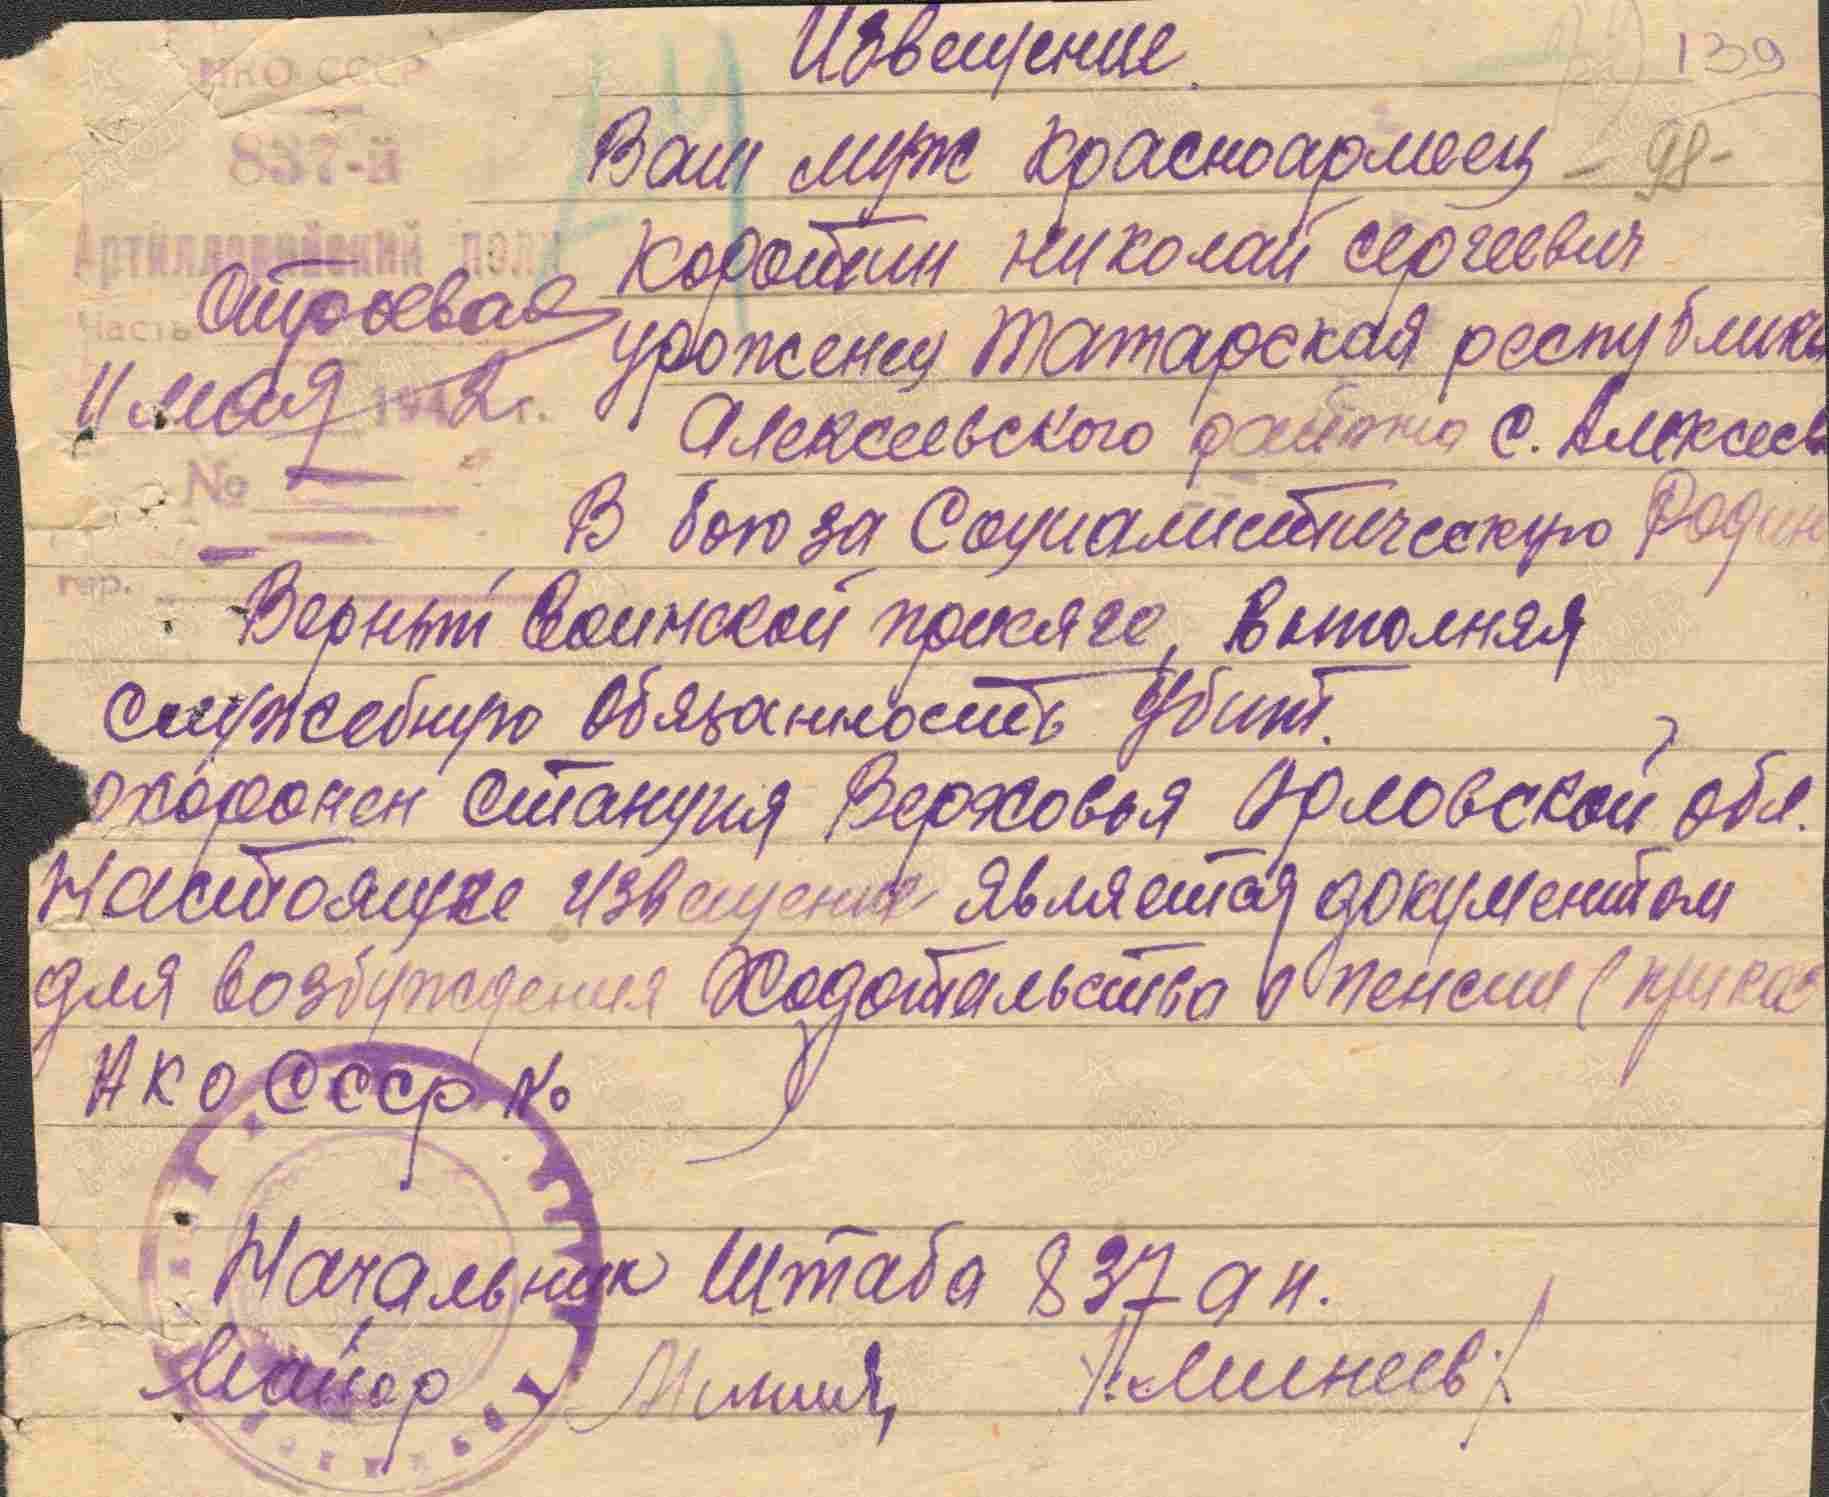 Извещение.
139
НКО СССР
837-й
Артиллерийский полк
Часть Строевая
11 мая 1942 г.
№
гор.
Ваш муж красноармеец
- 98 -
Коротин Николай Сергеевич
уроженец Татарская республика
Алексеевского района с. Алексеев
В бою за Социалистическую Родин
Верный воинской присяге, выполняя
служебную обязанность убит.
охоронен станция Верховья Орловской обл.
Настоящее извещение является документом
для возбуждения ходотальства о пенсии (приказ
НКО СССР №
Начальник Штаба 837 ап.
Майор /Минеев/